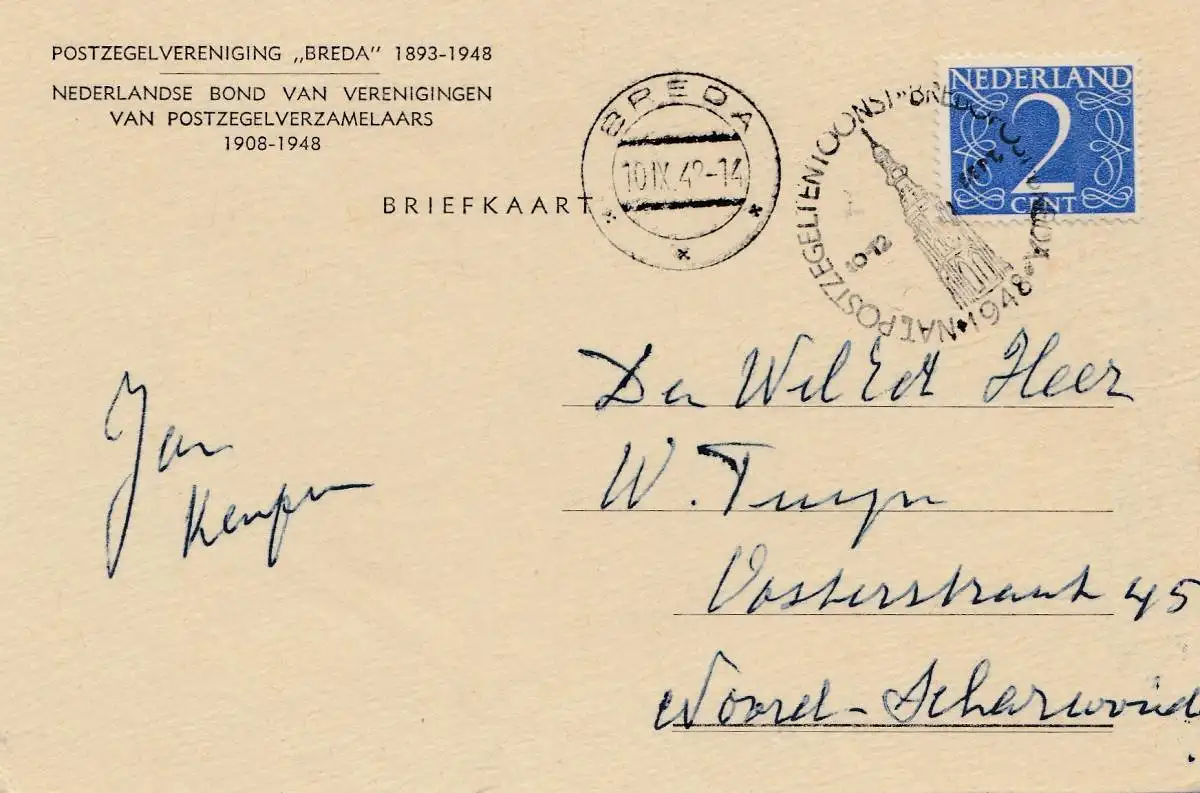 POSTZEGELVERENIGING „BREDA" 1893-1948
NEDERLANDSE BOND VAN VERENIGINGEN
VAN POSTZEGELVERZAMELAARS
1908-1948
BRIEFKAART
BREDA
10 IX.48-14
NAT. POSTZEGELTENTOONST.
1948
9-12
NEDERLAND
2
CENT
Den Wel Ed Heer
W. Tuyn
Oosterstraat 45
Noord-Scharwoude
Jan